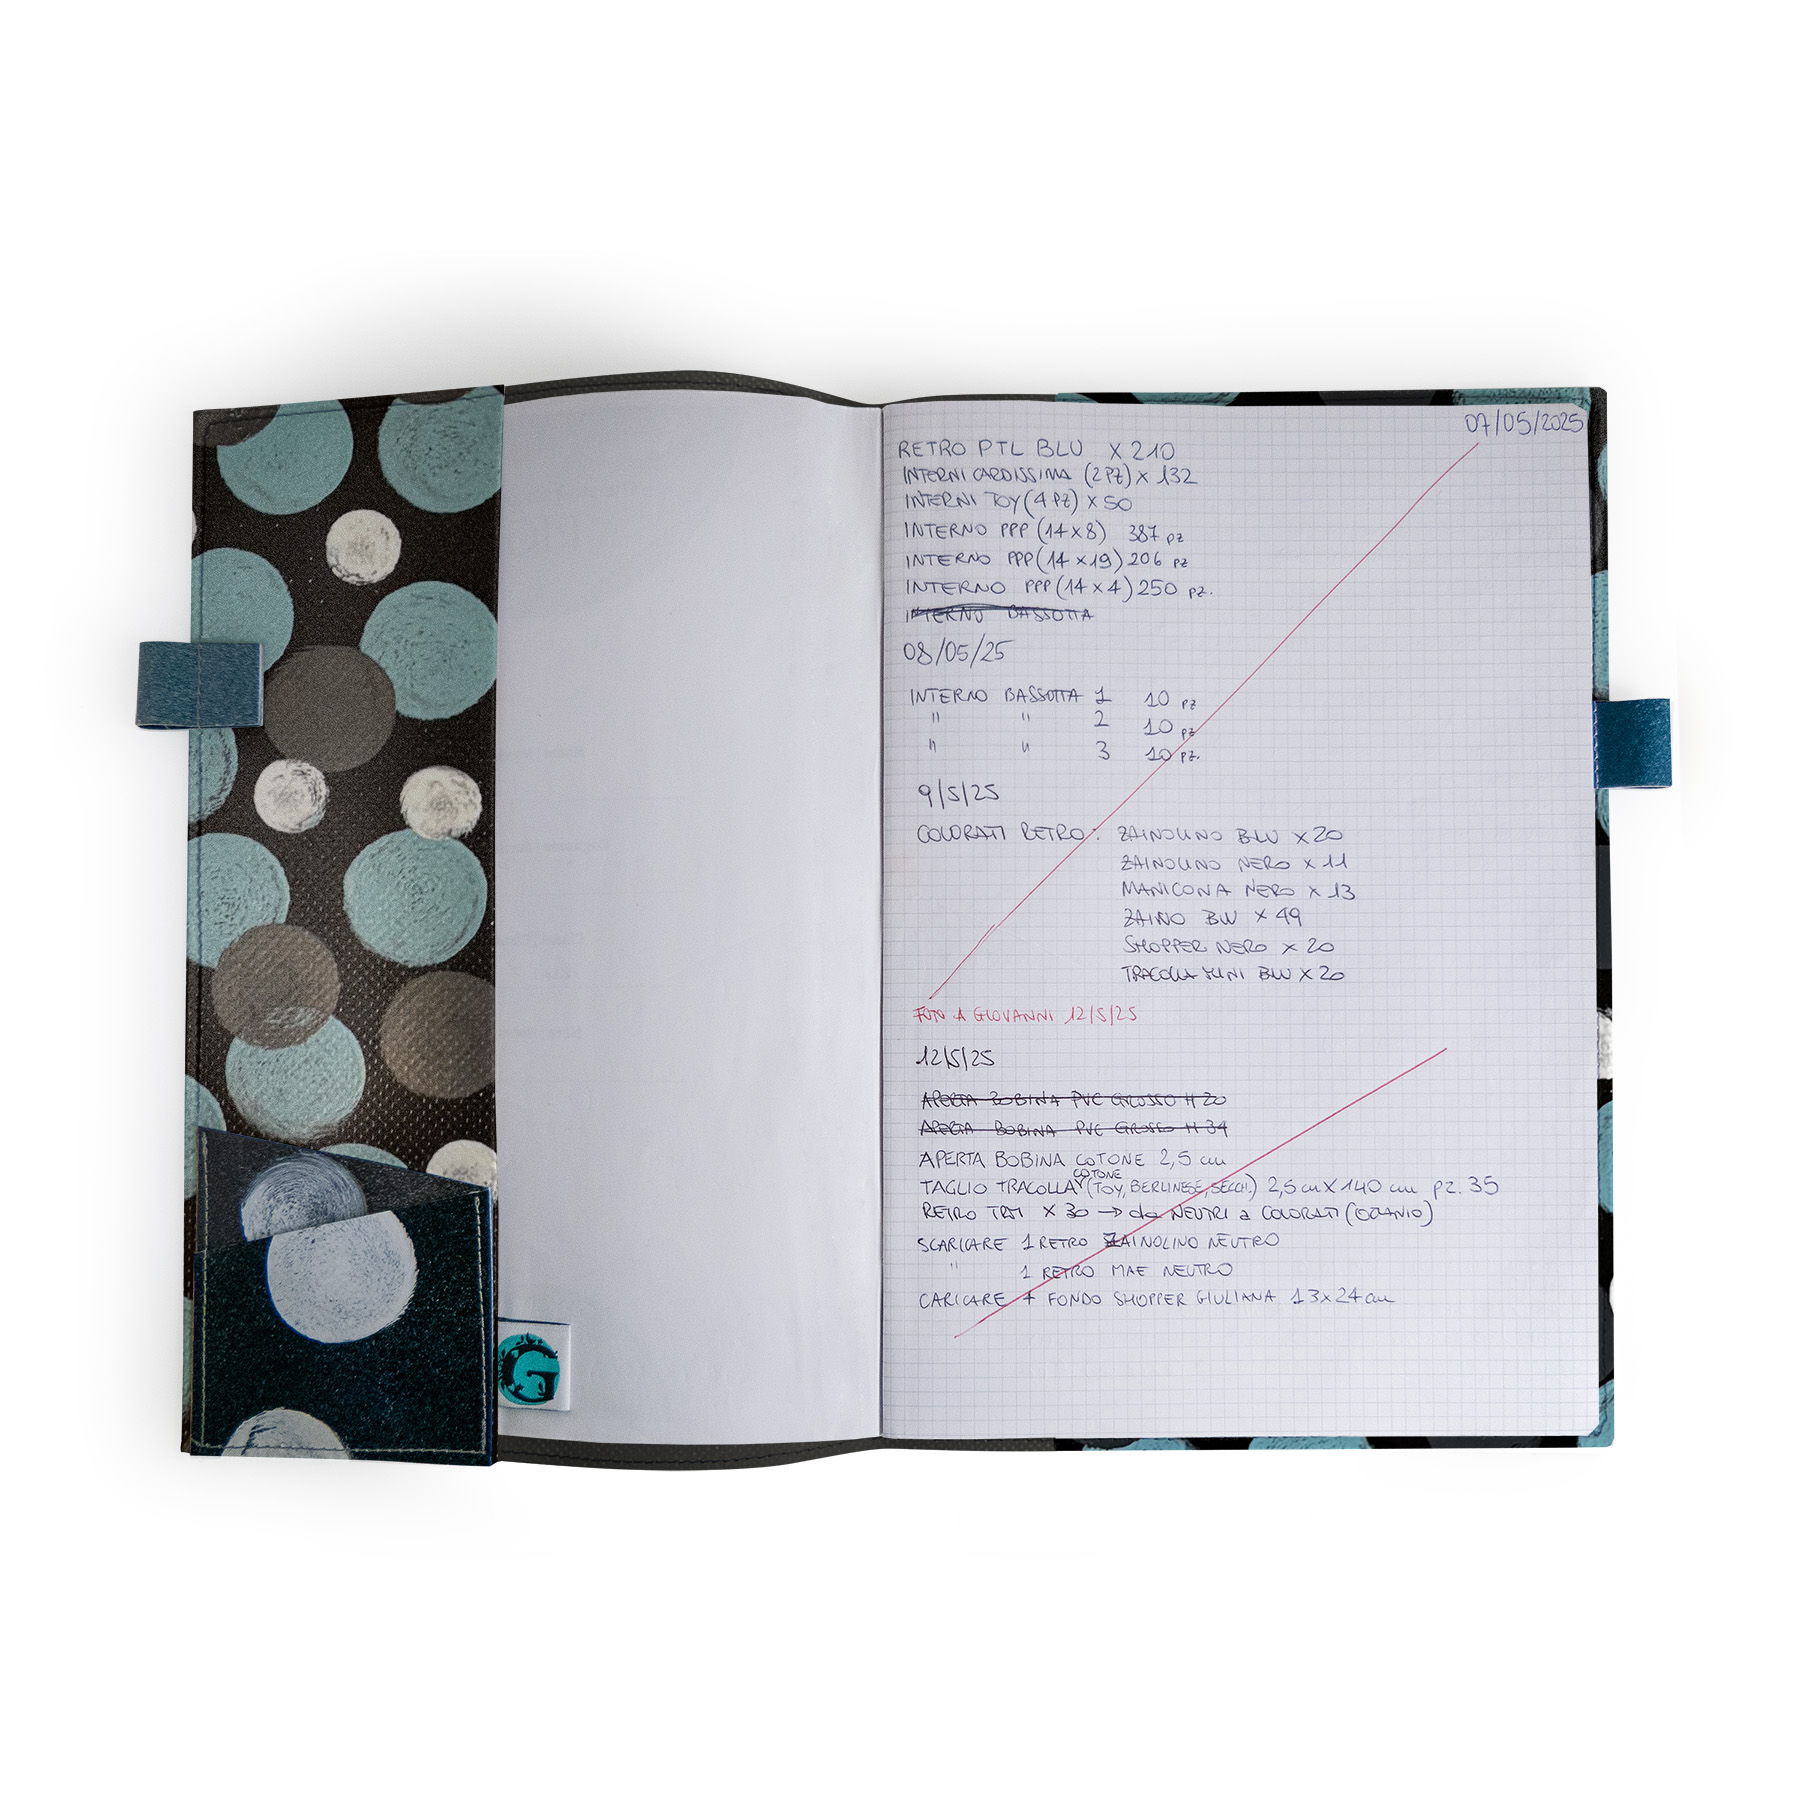 07/05/2025
RETRO PTL BLU X 210
INTERNI CARDISSIMA (2 PZ) X 132
INTERNI TOY (4 PZ) X 50
INTERNO PPP (14 X 8) 387 PZ
INTERNO PPP (14 X 19) 206 PZ
INTERNO PPP (14 X 4) 250 PZ.
INTERNO BASSOTTA
08/05/25
INTERNO BASSOTTA 1 10 PZ
" " 2 10 PZ
" " 3 10 PZ.
9/5/25
COLORATI RETRO: ZAINOLINO BLU X 20
ZAINOLINO NERO X 11
MANICONA NERO X 13
ZAINO BLU X 49
SHOPPER NERO X 20
TRACOLLA BLU X 20
FOTO A GIOVANNI 12/5/25
12/5/25
APERTA BOBINA PVC GROSSO H 20
APERTA BOBINA PVC GROSSO H 34
APERTA BOBINA COTONE 2,5 cm
TAGLIO TRACOLLA COTONE (TOY, BERLINESE, SECCH.) 2,5 cm X 140 cm pz. 35
RETRO TRM X 30 → da NEUTRI a COLORATI (OCEANIO)
SCARICARE 1 RETRO ZAINOLINO NEUTRO
" 1 RETRO MAE NEUTRO
CARICARE + FONDO SHOPPER GIULIANA 13 x 24 cm
G